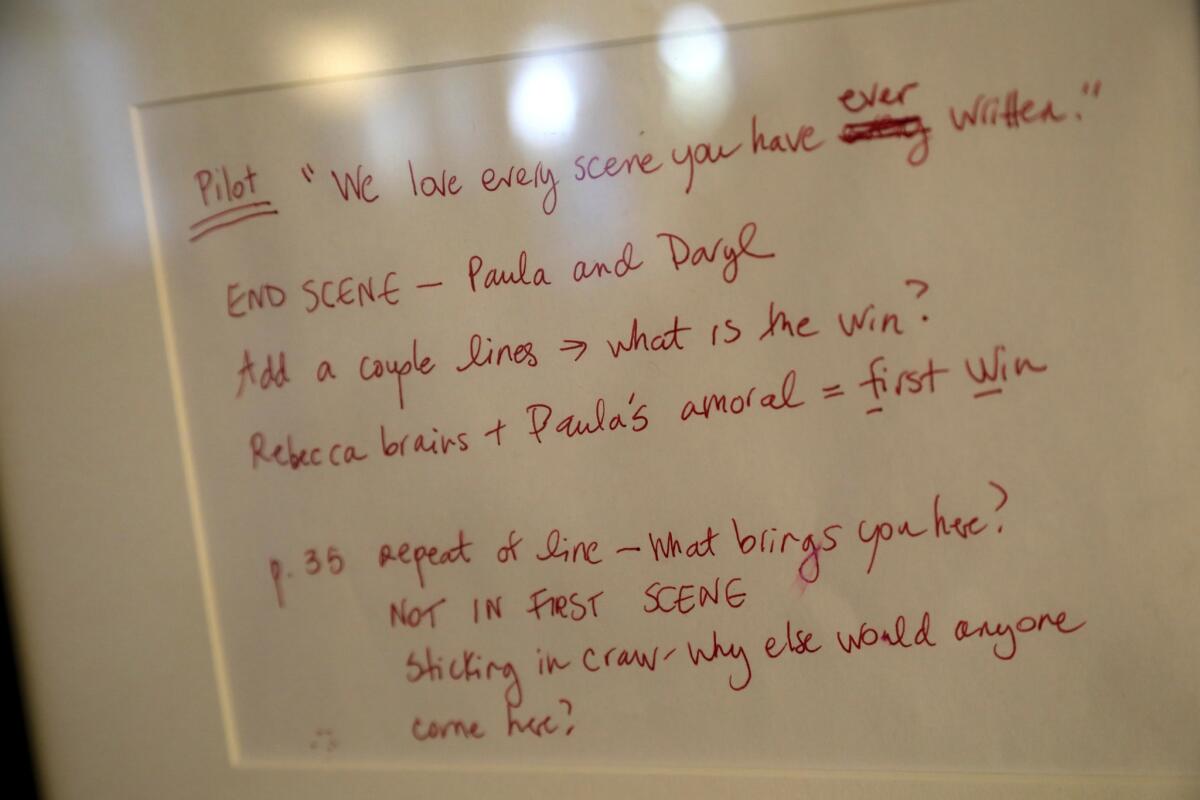 Pilot "We love every scene you have ever written."
END SCENE - Paula and Daryl
Add a couple lines → what is the win?
Rebecca brains + Paula's amoral = first win
p. 35 repeat of line - What brings you here?
NOT IN FIRST SCENE
Sticking in craw - why else would anyone
come here?